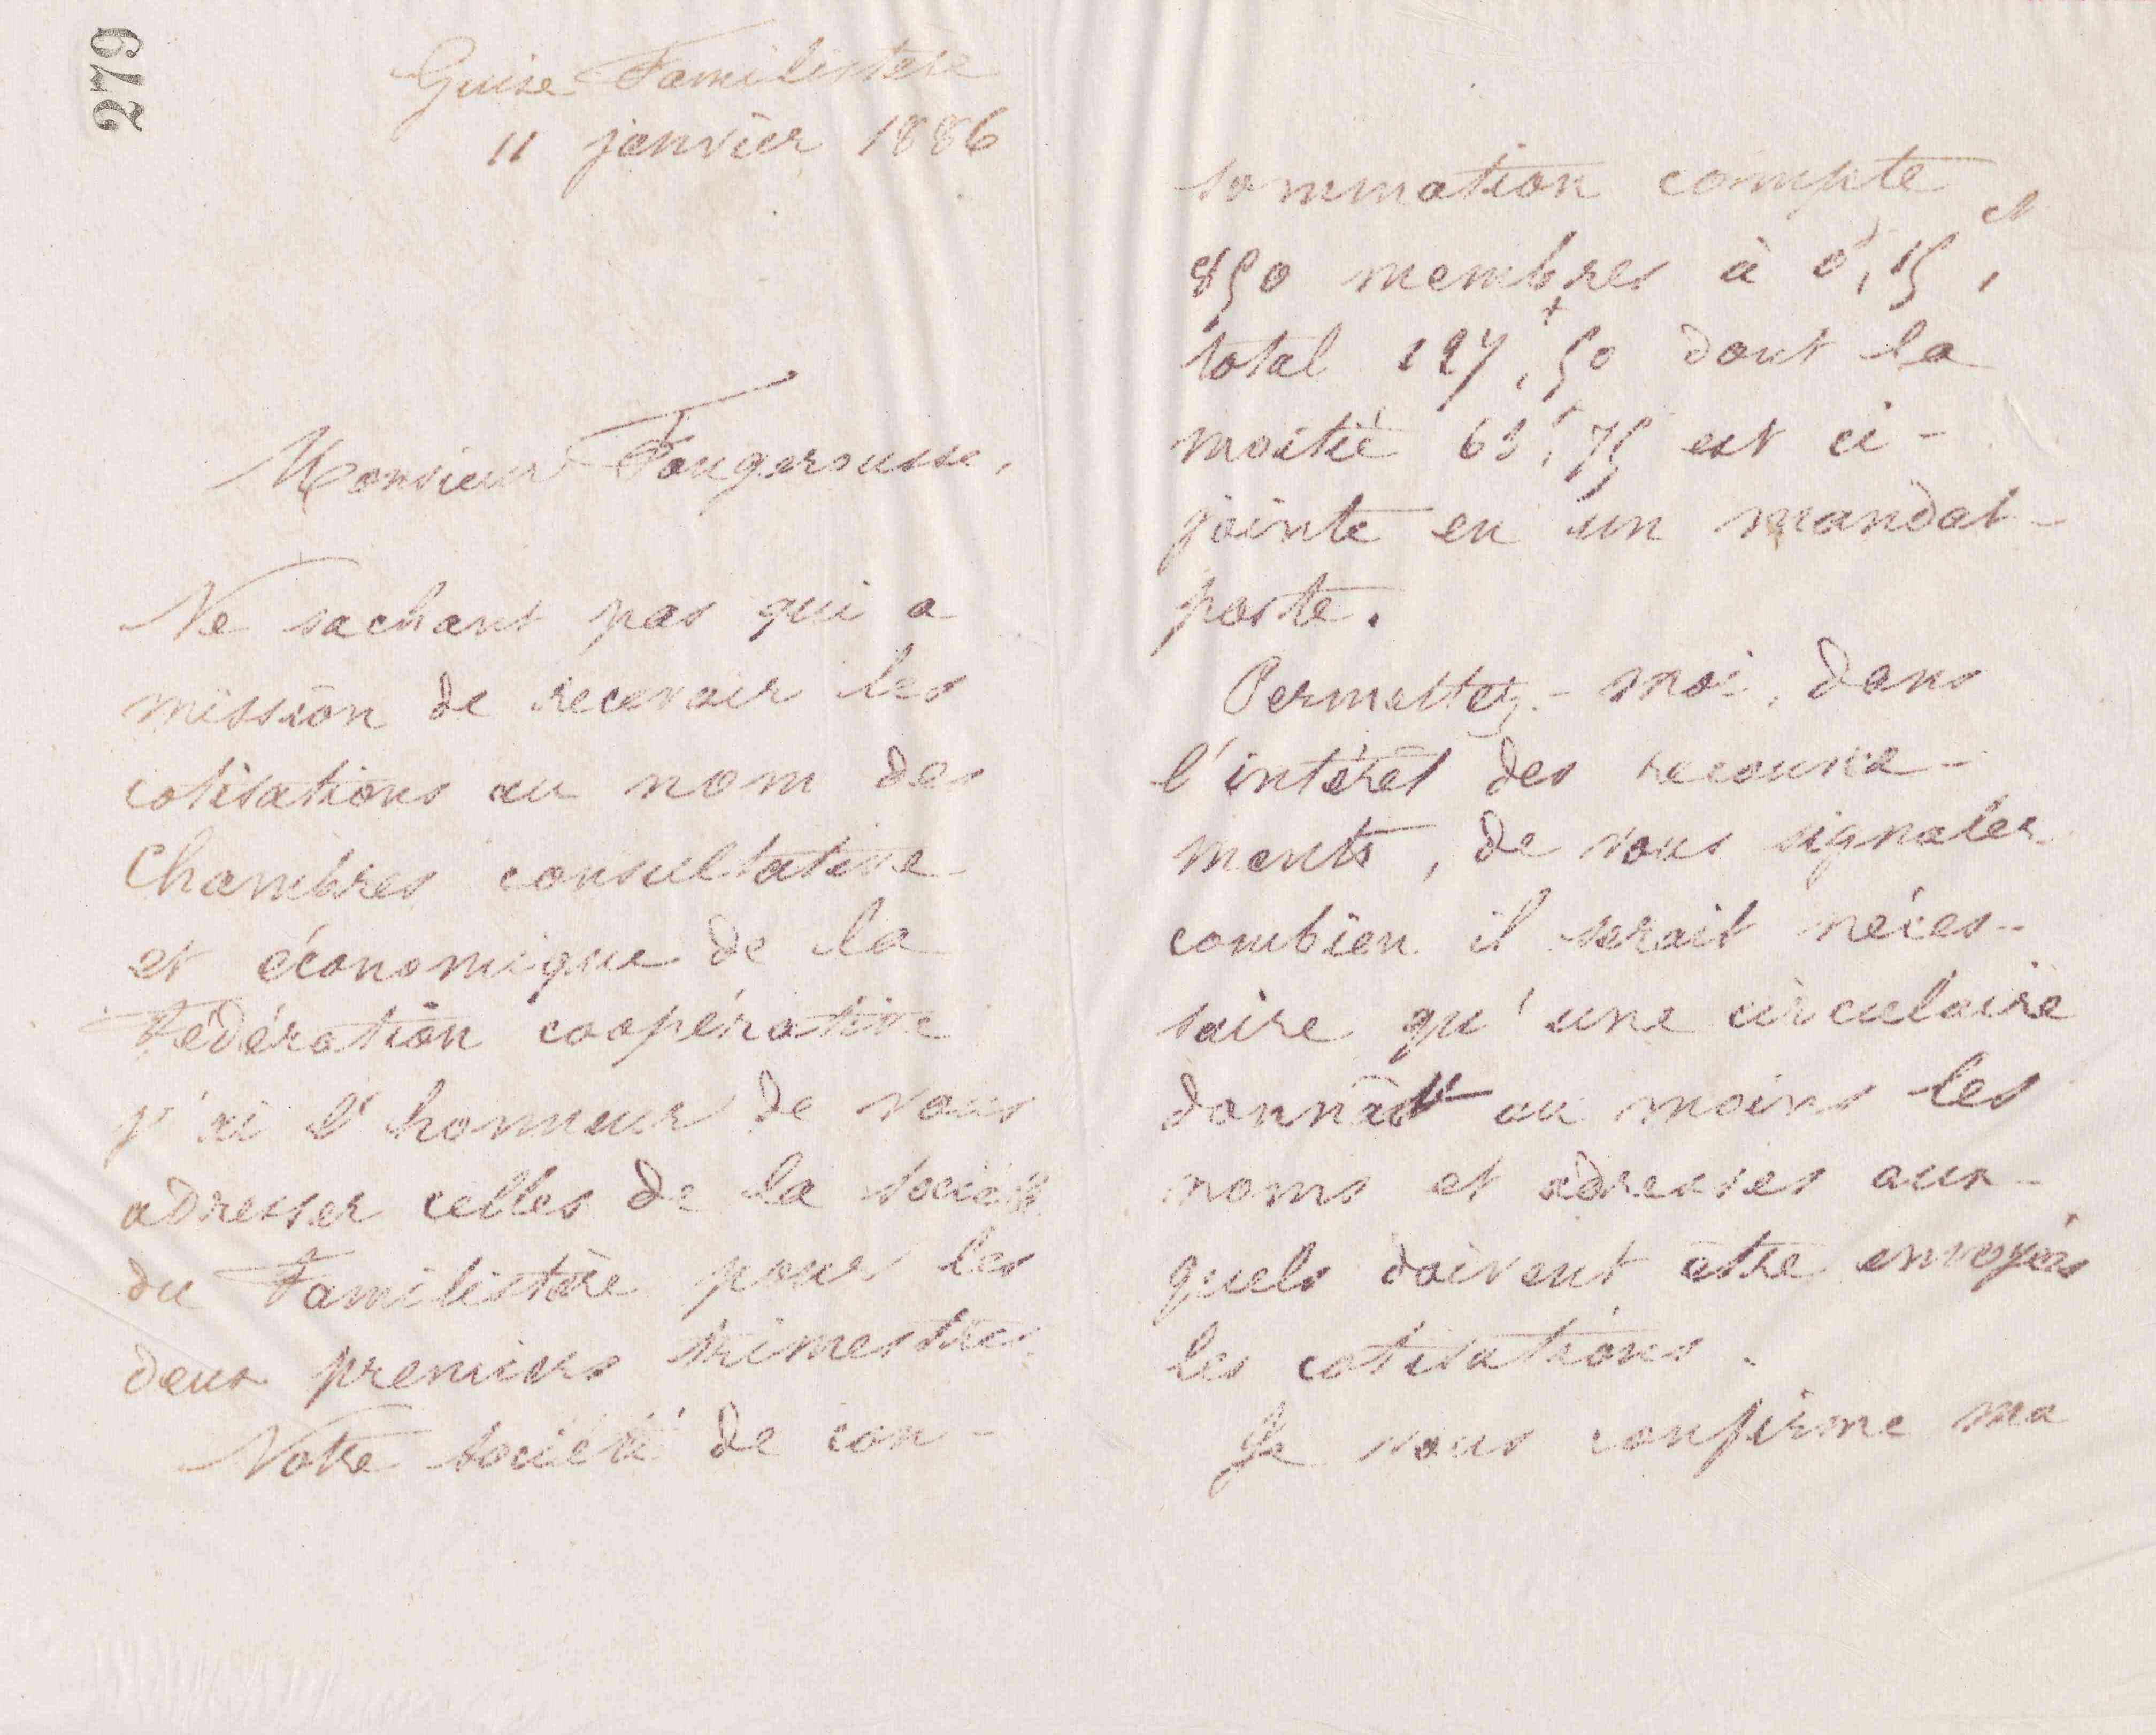 279
Guise Familistère
11 janvier 1886
Monsieur Fougerousse,
Ne sachant pas qui a
mission de recevoir les
cotisations au nom des
Chambres consultative
et économique de la
Fédération coopérative
j'ai l'honneur de vous
adresser celles de la société
du Familistère pour les
deux premiers trimestres.
Notre société de con-
sommation compte
850 membres à 0f,15 ct,
total 127f,50 dont la
moitié 63f,75 est ci-
jointe en un mandat-
poste.
Permettez-moi, dans
l'intérêt des recouvre-
ments, de vous signaler
combien il serait néces-
saire qu'une circulaire
donnât au moins les
noms et adresses aux-
quels doivent être envoyées
les cotisations.
Je vous confirme ma